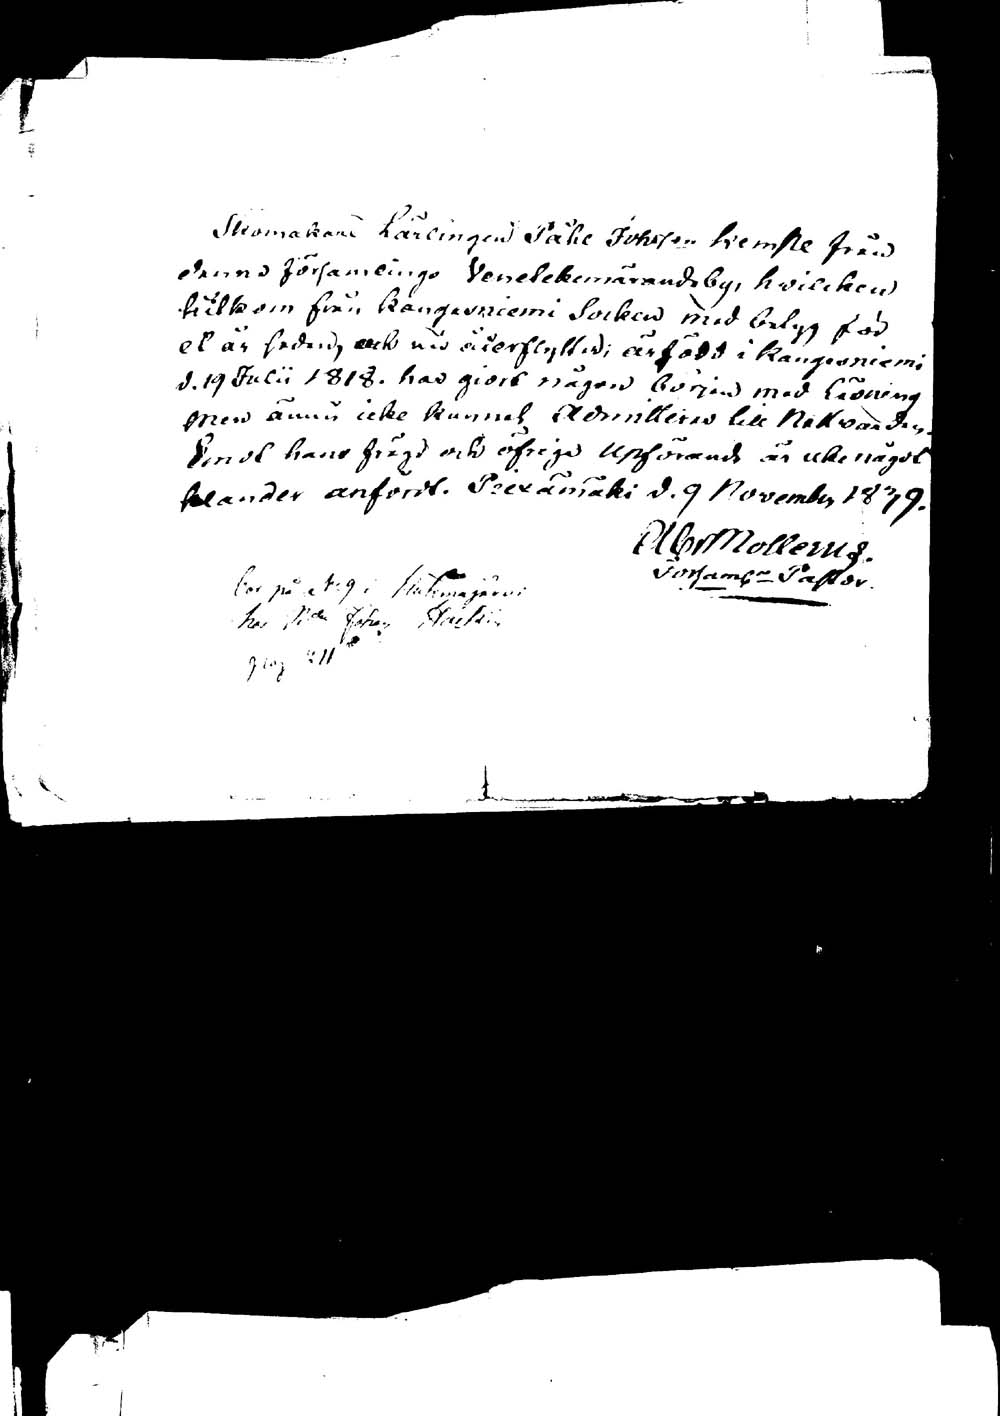 Skomakare Lärlingen Påhl Johsson hemste från
denna Församlings Venetekemärands by, hvilcken
tillkom från Kangasniemi Socken med belyg för
et år sedan, och nu återflyttar; är född i Kangasniemi
d. 19 Julii 1818. har giort någon början med Läsning
men ännu icke kunnat Admitteras till Nattvarden.
Emot hans frägd och öfriga Upförande är icke något
klander anfördt. Piexämäki d. 9 November 1839.
Abr Mollerus.
Församl. Pastor.
bor på N: 9 i
hos